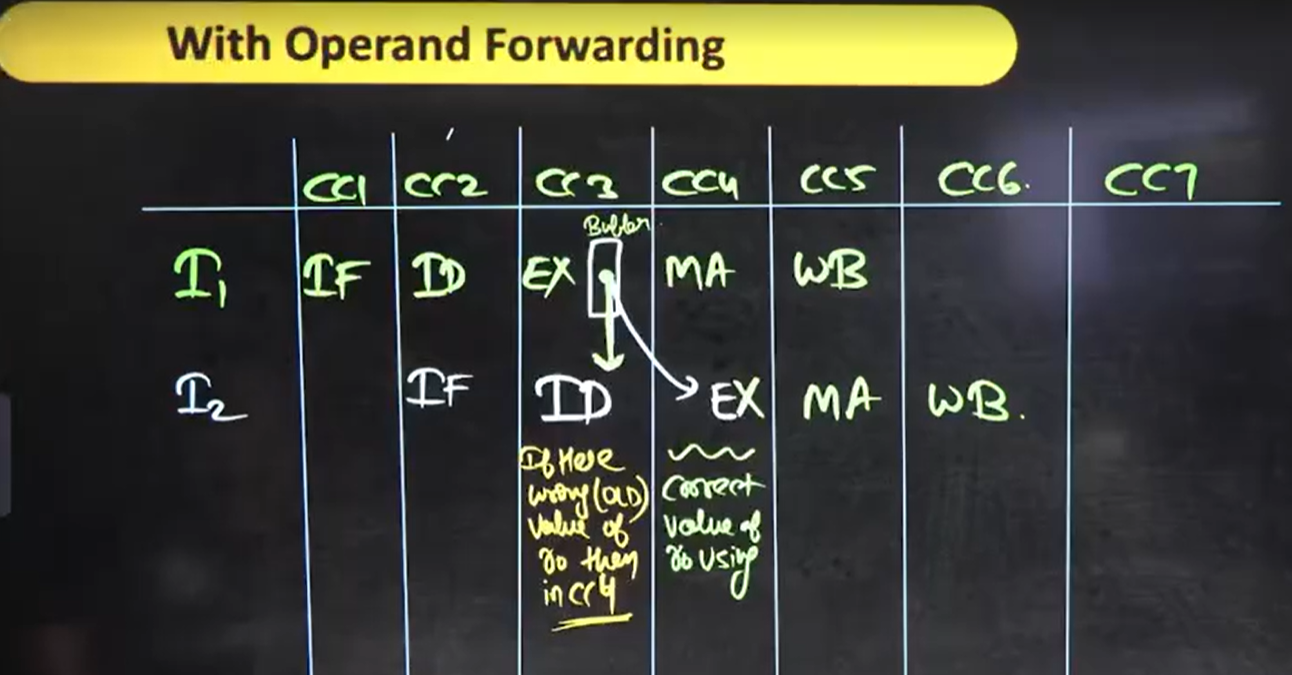 With Operand Forwarding
CC1 CC2 CC3 CC4 CC5 CC6. CC7
Buffer
I1 IF ID EX MA WB
I2 IF ID EX MA WB.
If Here
wrong (OLD)
value of
r0 then
in CC4
correct
value of
r0 using